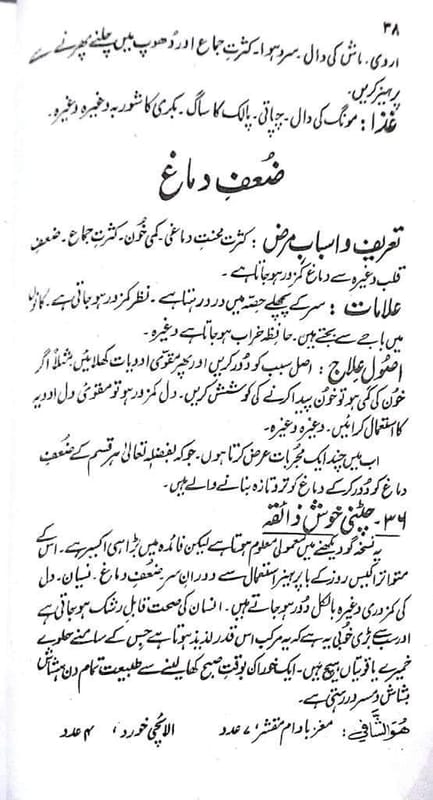 ۳۸
اروی۔ ماش کی دال۔ سرد ہوا۔ کثرتِ جماع اور دُھوپ میں چلنے پھرنے سے
پرہیز کریں۔
غذا: مونگ کی دال۔ چپاتی۔ پالک کا ساگ۔ بکری کا شوربہ وغیرہ وغیرہ۔
ضُعفِ دماغ
تعریف و اسبابِ مرض: کثرت محنتِ دماغی۔ کمی خُون۔ کثرتِ جماع۔ ضعفِ
قلب وغیرہ سے دماغ کمزور ہو جاتا ہے۔
علامات: سر کے پچھلے حِصّہ میں درد رہتا ہے۔ نظر کمزور ہو جاتی ہے۔ کانوں
میں باجے سے بجتے ہیں۔ حافظہ خراب ہو جاتا ہے وغیرہ۔
اصُولِ علاج: اصل سبب کو دُور کریں اور پھر مقوی ادویات کھلائیں مثلاً اگر
خُون کی کمی ہو تو خُون پیدا کرنے کی کوشش کریں۔ دل کمزور ہو تو مقوی دل ادویہ
کا استعمال کرائیں۔ وغیرہ وغیرہ۔
اب میں چند ایک مجربات عرض کرتا ہوں۔ جو کہ بفضلہ تعالیٰ ہر قسم کے ضُعفِ
دماغ کو دُور کر کے دماغ کو تر و تازہ بنانے والے ہیں۔
۳۶۔ چٹنی خوش ذائقہ
یہ نسخہ گو دیکھنے میں معمولی معلوم ہوتا ہے لیکن فائدہ میں بڑا ہی اکسیر ہے۔ اس کے
متواتر اکیس روز کے با پرہیز استعمال سے دورانِ سر۔ ضُعفِ دماغ۔ نسیان۔ دل
کی کمزوری وغیرہ بالکل دُور ہو جاتے ہیں۔ انسان کی صحت قابلِ رشک ہو جاتی ہے
اور سب سے بڑی خُوبی یہ ہے کہ یہ مرکب اس قدر لذیذ ہوتا ہے جس کے سامنے حلوے
خمیرے یاقوتیاں ہیچ ہیں۔ ایک خوراک بوقت صبح کھا لینے سے طبیعت تمام دن ہشاش
بشاش و مسرور رہتی ہے۔
ھُوَ الشَّافِی: مغز بادام مقشر، ۷ عدد الائچی خورد، ۴ عدد